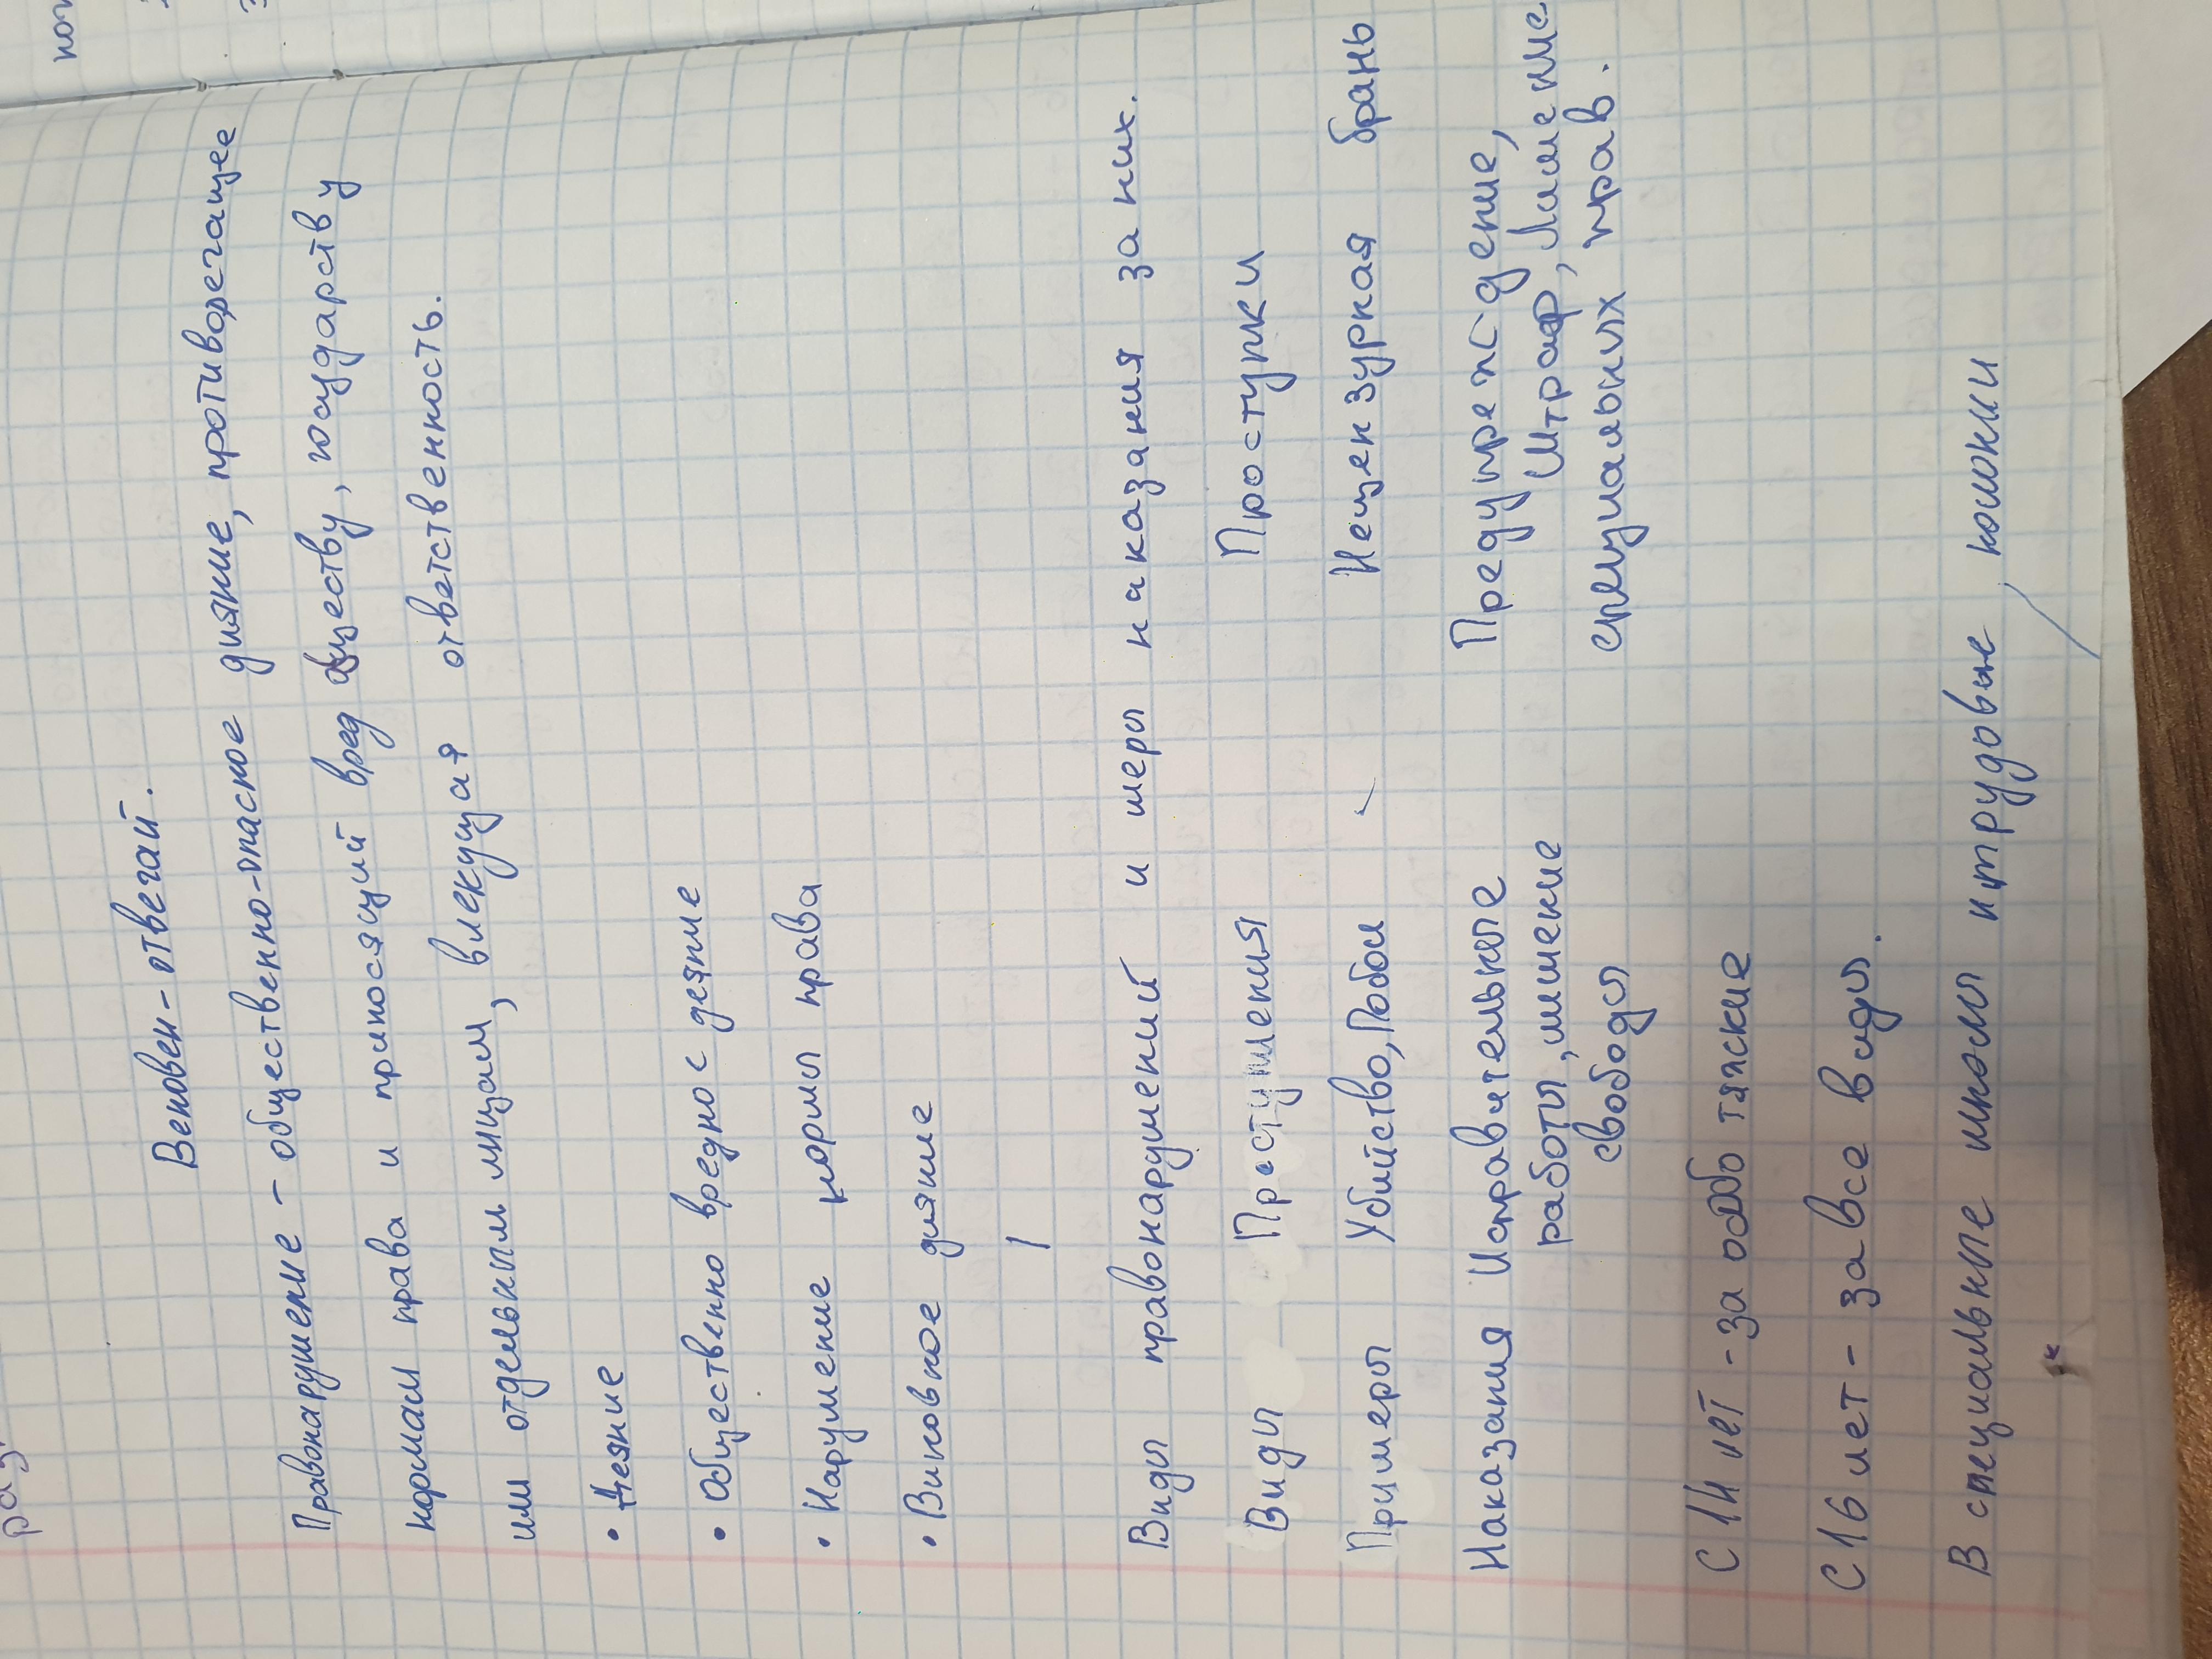 Веновен - отвечай.
Правонарушение - общественно-опасное дияние, противоречащее
нормам права и приносящий вред обществу, государству
или отдельным лицам, влекущая ответственность.
• Деяние
• Общественно вредное деяние
• Нарушение нормы права
• Виновное дияние
Виды правонарушений и меры наказания за них.
Виды Преступления Проступки
Примеры Убийство, Побои Нецензурная брань
Наказания Исправительные Предупреждение,
работы, лишение Штраф, Лишение
свободы специальных прав.
С 14 лет - за особо тяжкие
С 16 лет - за все виды.
В специальные школы и трудовые колонки